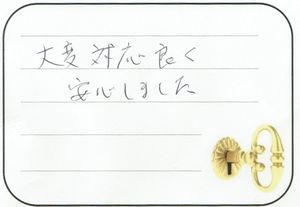 大変対応良く
安心しました